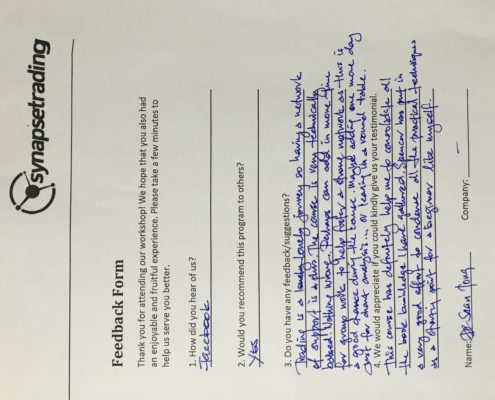 synapsetrading
Feedback Form
Thank you for attending our workshop! We hope that you also had
an enjoyable and fruitful experience. Please take a few minutes to
help us serve you better.
1. How did you hear of us?
Facebook
2. Would you recommend this program to others?
Yes
3. Do you have any feedback/suggestions?
Trading is a lonely journey so having a network
of support is a plus. The course is very technically
based. Nothing wrong. Perhaps can add in more time
for group work to help foster a strong network as this is
a good chance during the course. Maybe adding one more day
just for chart analysis... or learning in a round table.
4. We would appreciate if you could kindly give us your testimonial.
This course has definitely help me to consolidate all
the book knowledge I have gathered. Spencer has put in
a very good effort to condense all the practical techniques
as a starting point for a beginner like myself.
Name: Company: